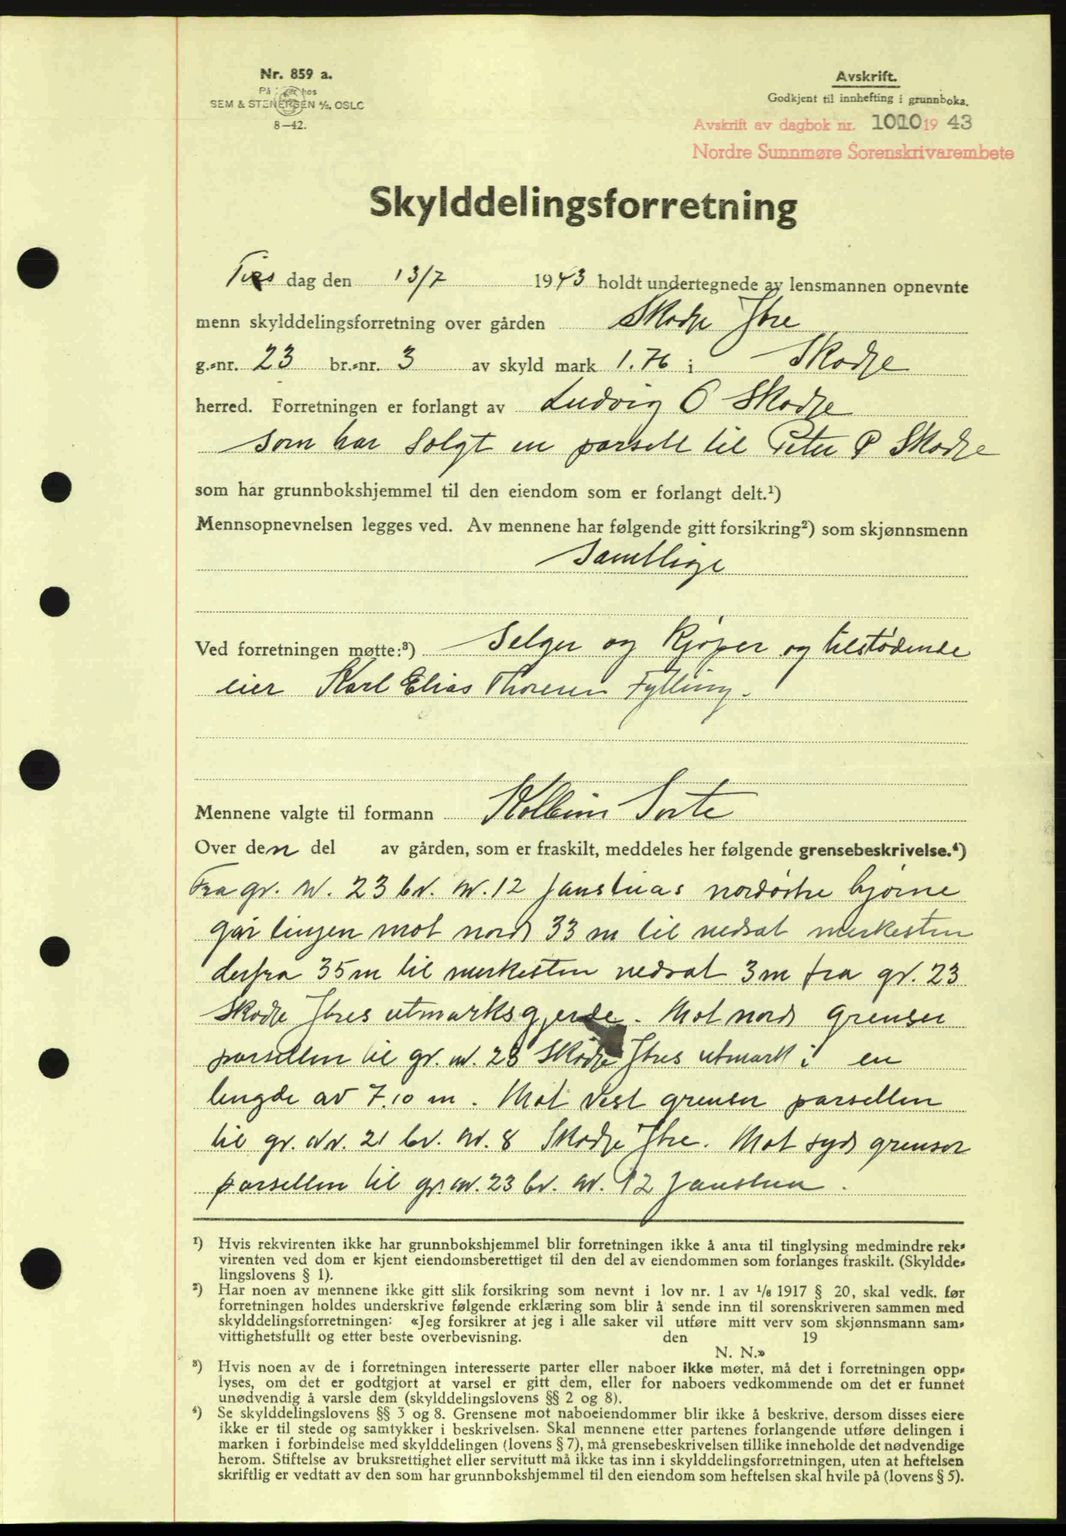 Nr. 859 a.
SEM & STENERSEN A/S, OSLO
8—42.
Avskrift.
Godkjent til innhefting i grunnboka.
Avskrift av dagbok nr. 1010 19 43
Nordre Sunnmøre Sorenskrivarembete
Skylddelingsforretning
Tirs dag den 13/7 1943 holdt undertegnede av lensmannen opnevnte
menn skylddelingsforretning over gården Skodje Ytre
g.-nr. 23 br.-nr. 3 av skyld mark 1.76 i Skodje
herred. Forretningen er forlangt av Ludvig O Skodje
som har solgt en parsell til Peter P Skodje
som har grunnbokshjemmel til den eiendom som er forlangt delt.¹)
Mennsopnevnelsen legges ved. Av mennene har følgende gitt forsikring²) som skjønnsmenn
Samtlige
Ved forretningen møtte:³) Selger og kjøper og tilstødende
eier Karl Elias Thoresen Fylling.
Mennene valgte til formann Kolbein Sorte
Over den del av gården, som er fraskilt, meddeles her følgende grensebeskrivelse.⁴)
Fra gr. nr. 23 br. nr. 12 nordøstre hjørne
går linjen mot nord 33 m til nedsat merkesten
derfra 35 m til merkesten nedsat 3 m fra gr. 23
Skodje Ytres utmarksgjerde. Mot nord grenser
parsellen til gr. nr. 23 Skodje Ytres utmark i en
lengde av 7.10 m. Mot vest grenser parsellen
til gr. nr. 21 br. nr. 8 Skodje Ytre. Mot syd grenser
parsellen til gr. nr. 23 br. nr. 12
¹) Hvis rekvirenten ikke har grunnbokshjemmel blir forretningen ikke å anta til tinglysing medmindre rek-
virenten ved dom er kjent eiendomsberettiget til den del av eiendommen som forlanges fraskilt. (Skyldde-
lingslovens § 1).
²) Har noen av mennene ikke gitt slik forsikring som nevnt i lov nr. 1 av 1/6 1917 § 20, skal vedk. før
forretningen holdes underskrive følgende erklæring som blir å sende inn til sorenskriveren sammen med
skylddelingsforretningen: «Jeg forsikrer at jeg i alle saker vil utføre mitt verv som skjønnsmann sam-
vittighetsfullt og etter beste overbevisning. den 19
N. N.»
³) Hvis noen av de i forretningen interesserte parter eller naboer ikke møter, må det i forretningen opp-
lyses, om det er godtgjort at varsel er gitt dem, eller for naboers vedkommende om det er funnet
unødvendig å varsle dem (skylddelingslovens §§ 2 og 8).
⁴) Se skylddelingslovens §§ 3 og 8. Grensene mot naboeiendommer blir ikke å beskrive, dersom disses eiere
ikke er til stede og samtykker i beskrivelsen. Skal mennene etter partenes forlangende utføre delingen i
marken i forbindelse med skylddelingen (lovens § 7), må grensebeskrivelsen tillike inneholde det nødvendige
herom. Stiftelse av bruksrettighet eller servitutt må ikke tas inn i skylddelingsforretningen, uten at heftelsen
skriftlig er vedtatt av den som har grunnbokshjemmel til den eiendom som heftelsen skal hvile på (lovens § 5).